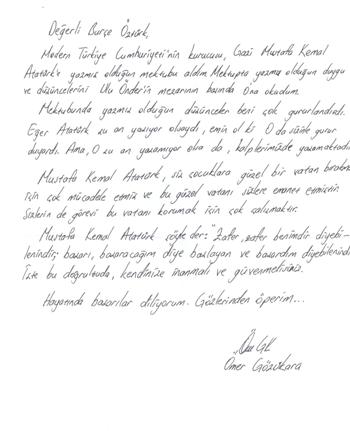 Değerli Burçe Öztürk,
Modern Türkiye Cumhuriyeti'nin kurucusu, Gazi Mustafa Kemal
Atatürk'e yazmış olduğun mektubu aldım. Mektupta yazmış olduğun duygu
ve düşüncelerini Ulu Önder'in mezarının başında Ona okudum.
Mektubunda yazmış olduğun düşünceler beni çok gururlandırdı.
Eğer Atatürk şu an yaşıyor olsaydı, emin ol ki O da sizinle gurur
duyardı. Ama, O şu an yaşamıyor olsa da, kalplerimizde yaşamaktadır.
Mustafa Kemal Atatürk, siz çocuklara güzel bir vatan bırakmak
için çok mücadele etmiş ve bu güzel vatanı sizlere emanet etmiştir.
Sizlerin de görevi bu vatanı korumak için çok çalışmaktır.
Mustafa Kemal Atatürk şöyle der: "Zafer, zafer benimdir diyebi-
lenindir; başarı, başaracağım diye başlayan ve başardım diyebilenindi
İşte bu doğrultuda, kendinize inanmalı ve güvenmelisiniz.
Hayatında başarılar diliyorum. Gözlerinden öperim...
Ömer Gözükara